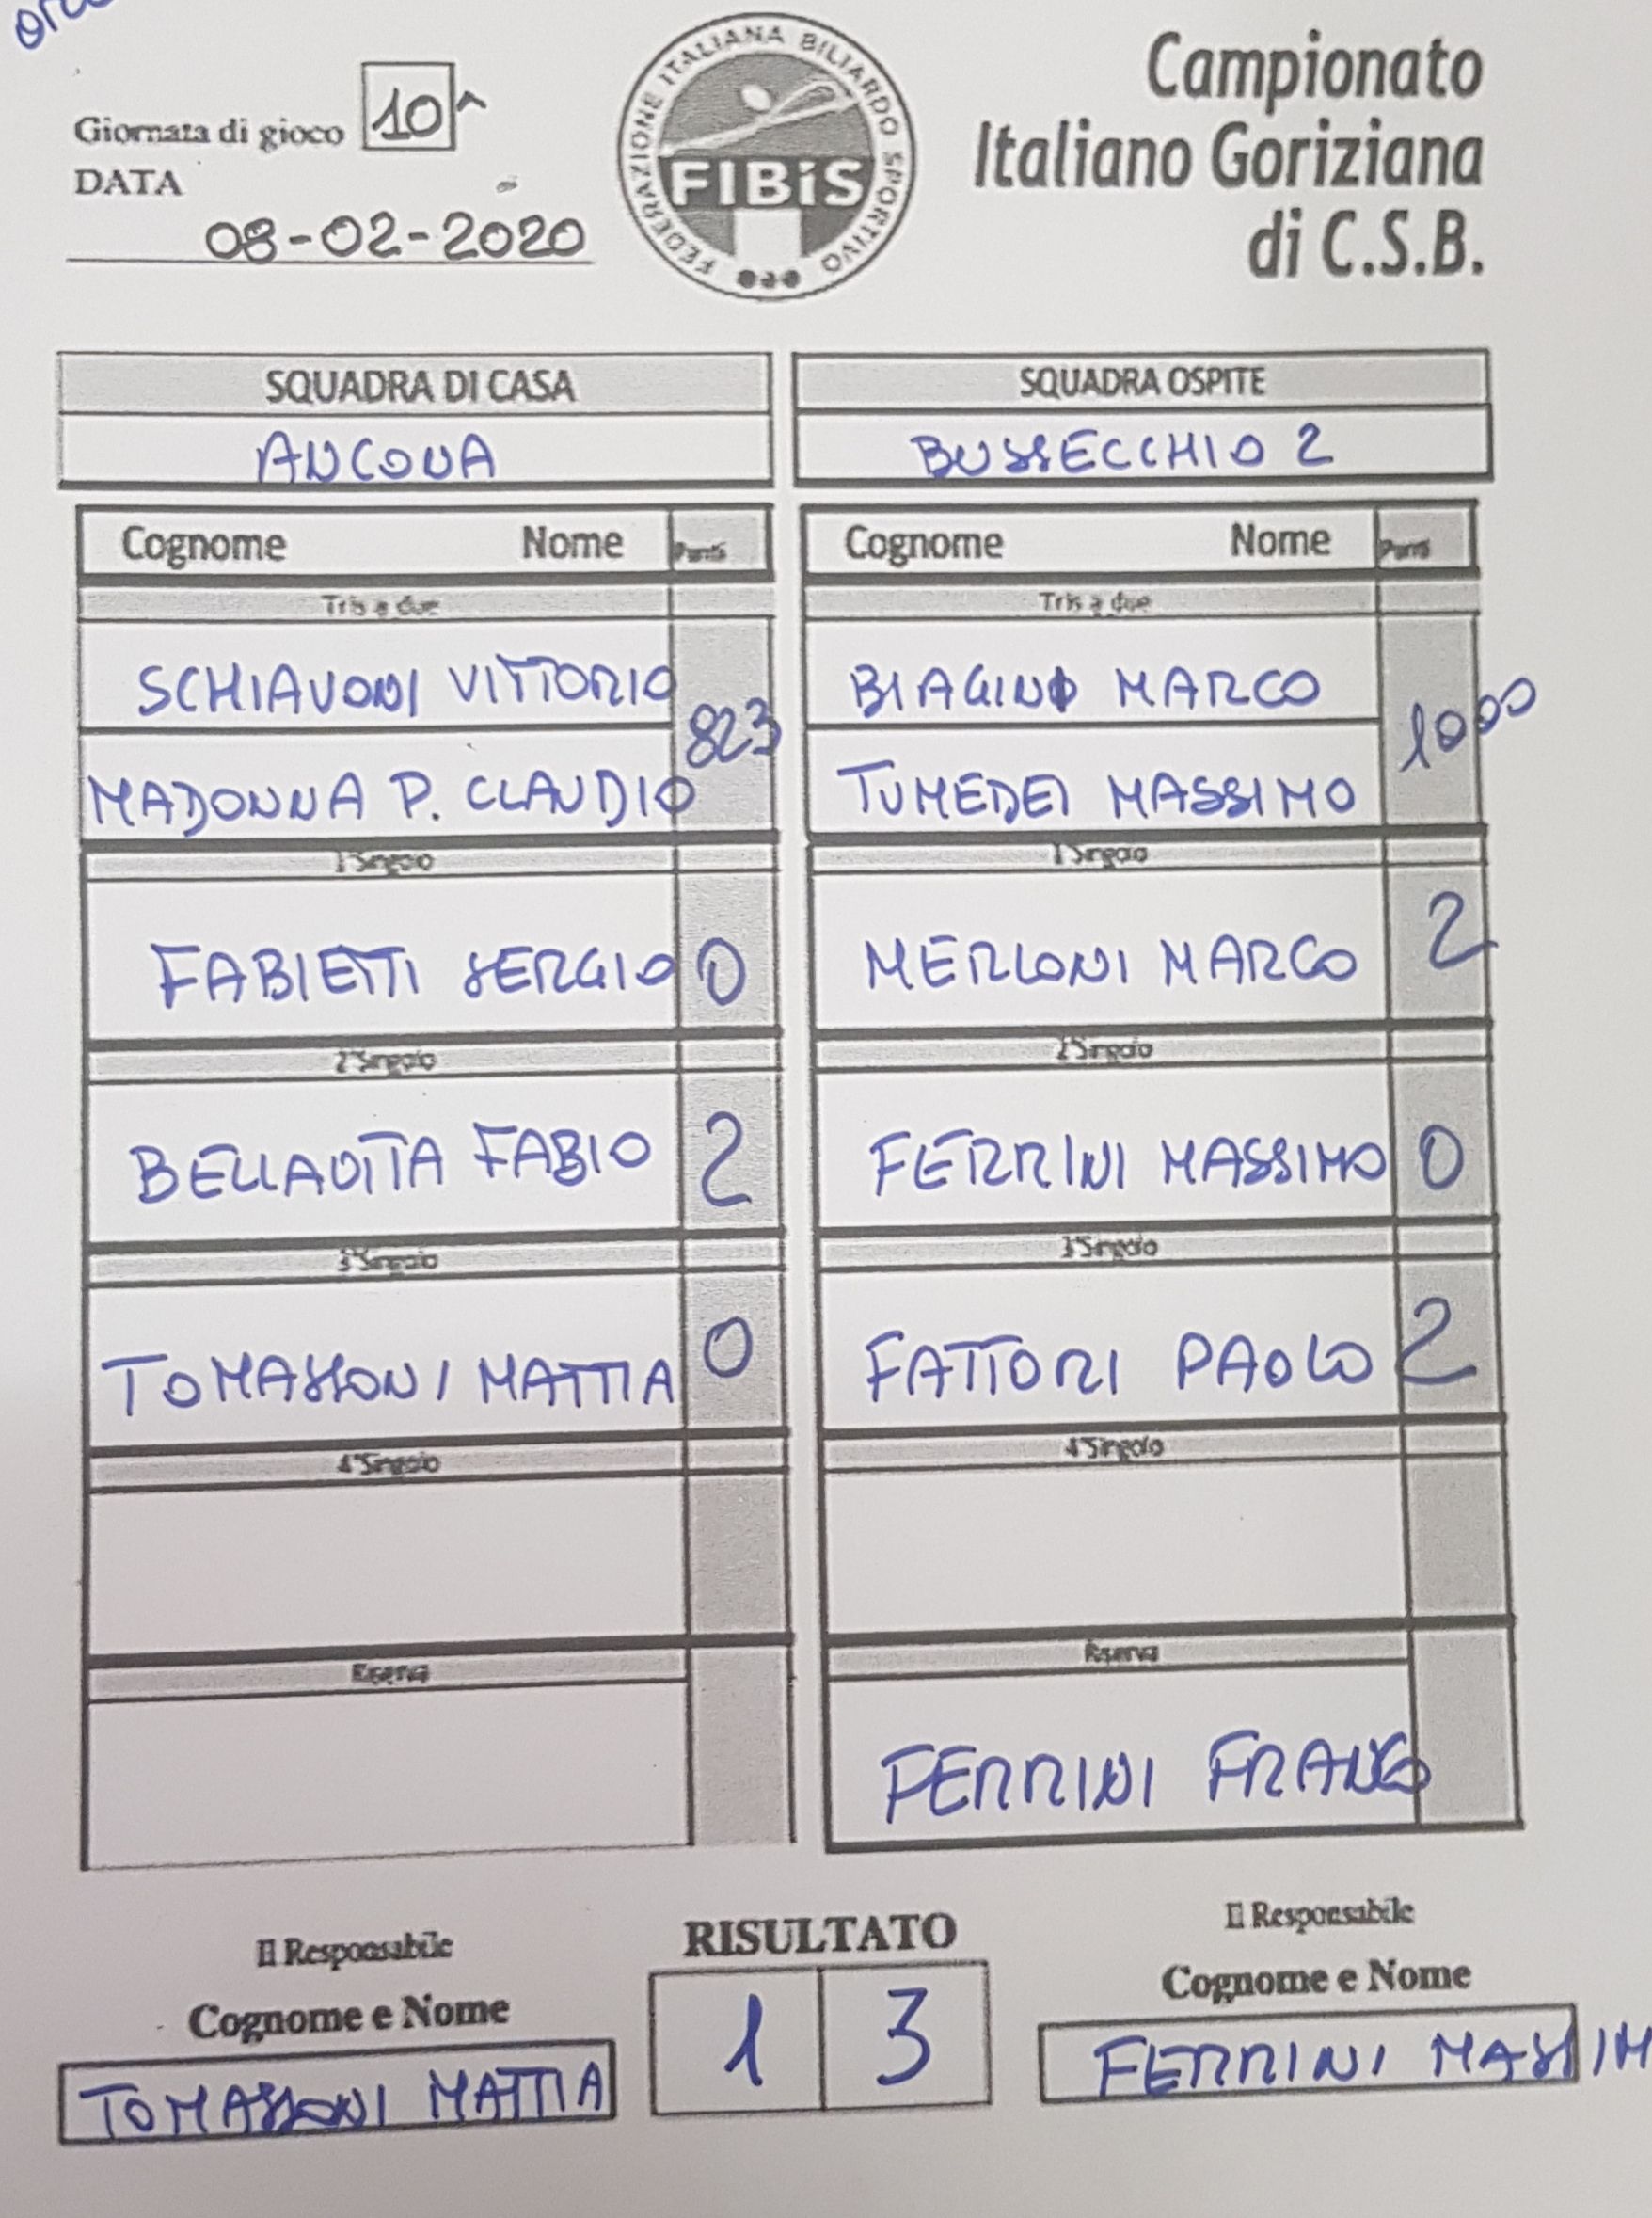 Giornata di gioco 10^
DATA
08-02-2020
FEDERAZIONE ITALIANA BILIARDO SPORTIVO
FIBiS
Campionato
Italiano Goriziana
di C.S.B.
SQUADRA DI CASA
ANCONA
SQUADRA OSPITE
BUSSECCHIO 2
Cognome Nome Punti
Tris a due
SCHIAVONI VITTORIO
823
MADONNA P. CLAUDIO
1°Singolo
FABIETTI SERGIO 0
2°Singolo
BELLAVITA FABIO 2
3°Singolo
TOMASSONI MATTIA 0
4°Singolo
Riserva
Cognome Nome Punti
Tris a due
BIAGINO MARCO
1000
TUMEDEI MASSIMO
1°Singolo
MERLONI MARCO 2
2°Singolo
FERRINI MASSIMO 0
3°Singolo
FATTORI PAOLO 2
4°Singolo
Riserva
FERRINI FRANCO
Il Responsabile
Cognome e Nome
TOMASSONI MATTIA
RISULTATO
1 3
Il Responsabile
Cognome e Nome
FERRINI MASSIM